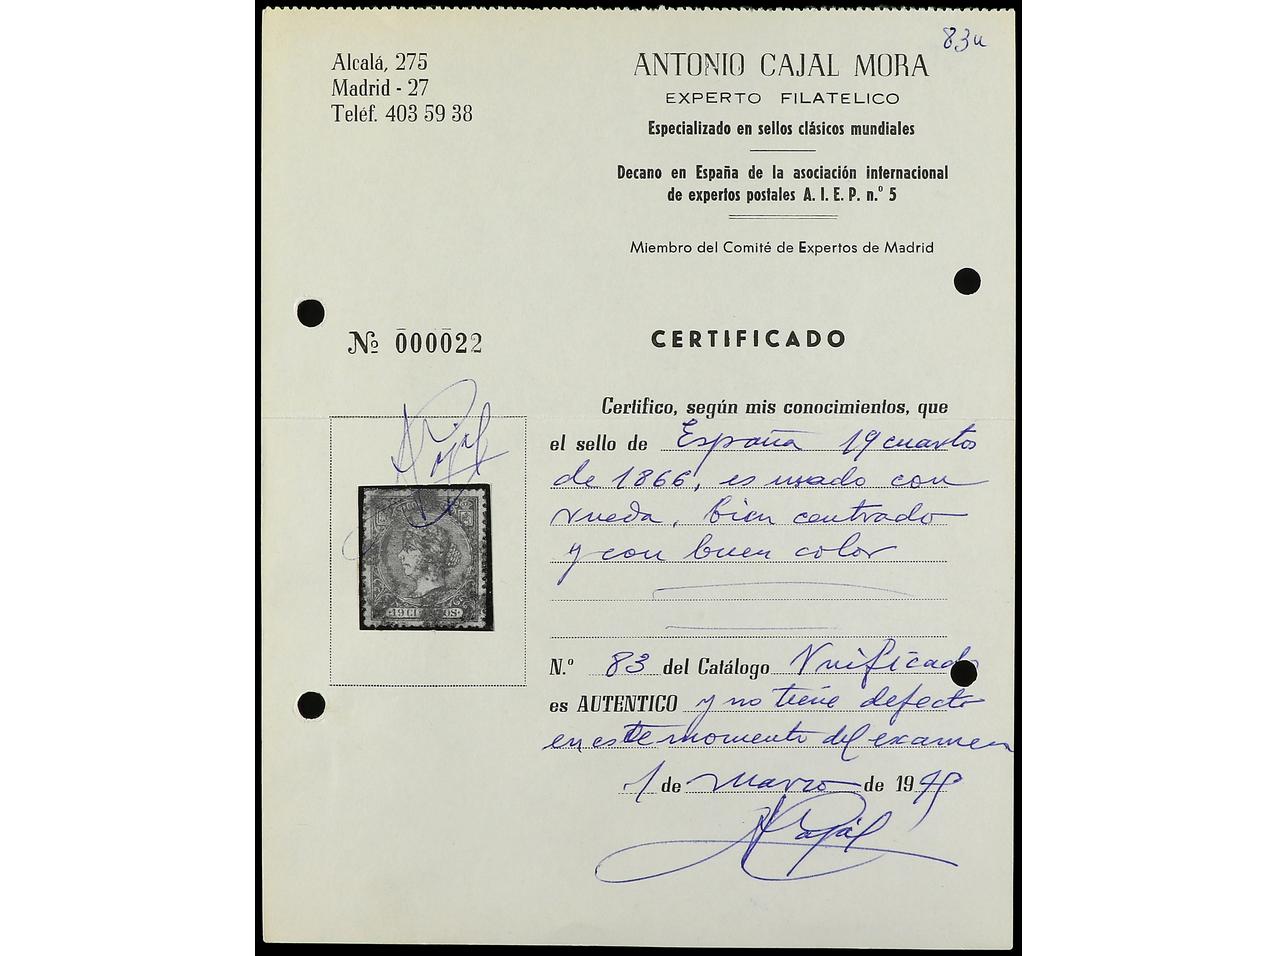 83u
Alcalá, 275
Madrid - 27
Teléf. 403 59 38
ANTONIO CAJAL MORA
EXPERTO FILATELICO
Especializado en sellos clásicos mundiales
Decano en España de la asociación internacional
de expertos postales A. I. E. P. n.º 5
Miembro del Comité de Expertos de Madrid
Nº 000022
CERTIFICADO
Certifico, según mis conocimientos, que
el sello de España 19 cuartos
de 1866, es usado con
rueda, bien centrado
y con buen color
A Cajal
19 CUARTOS
N.º 83 del Catálogo Unificado
es AUTENTICO y no tiene defecto
en este momento del examen
1 de Marzo de 19
A Cajal